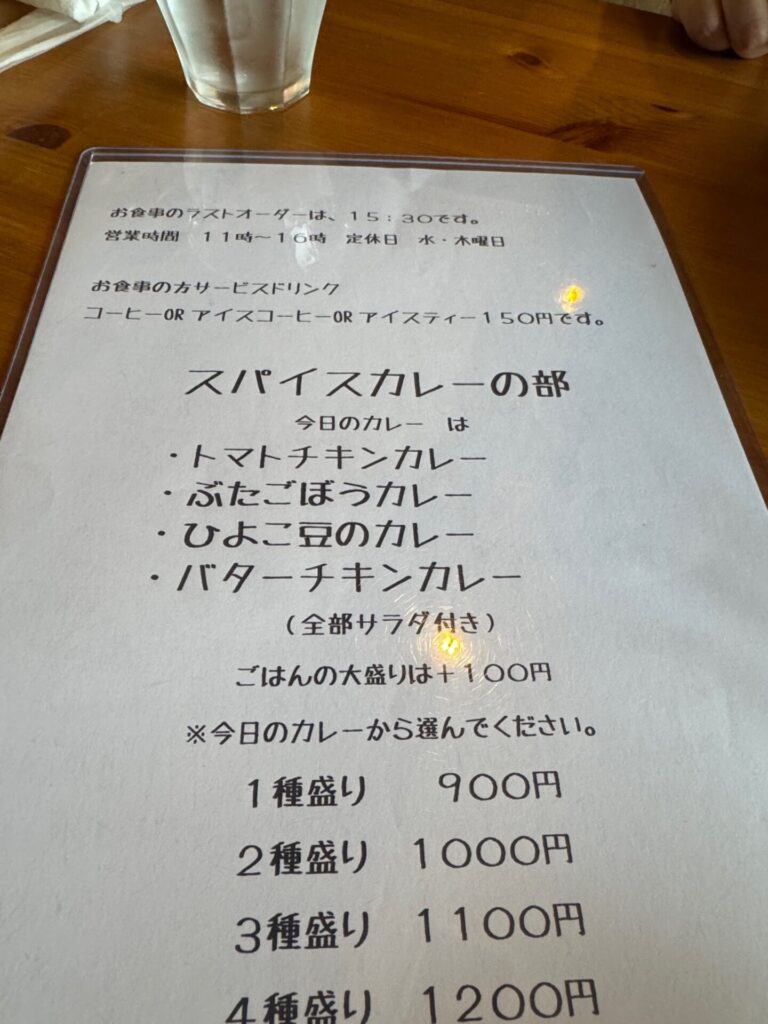 お食事のラストオーダーは、15:30です。
営業時間　11時～16時　定休日　水・木曜日
お食事の方サービスドリンク
コーヒーOR アイスコーヒーOR アイスティー150円です。
スパイスカレーの部
今日のカレー　は
・トマトチキンカレー
・ぶたごぼうカレー
・ひよこ豆のカレー
・バターチキンカレー
（全部サラダ付き）
ごはんの大盛りは＋100円
※今日のカレーから選んでください。
1種盛り　900円
2種盛り　1000円
3種盛り　1100円
4種盛り　1200円